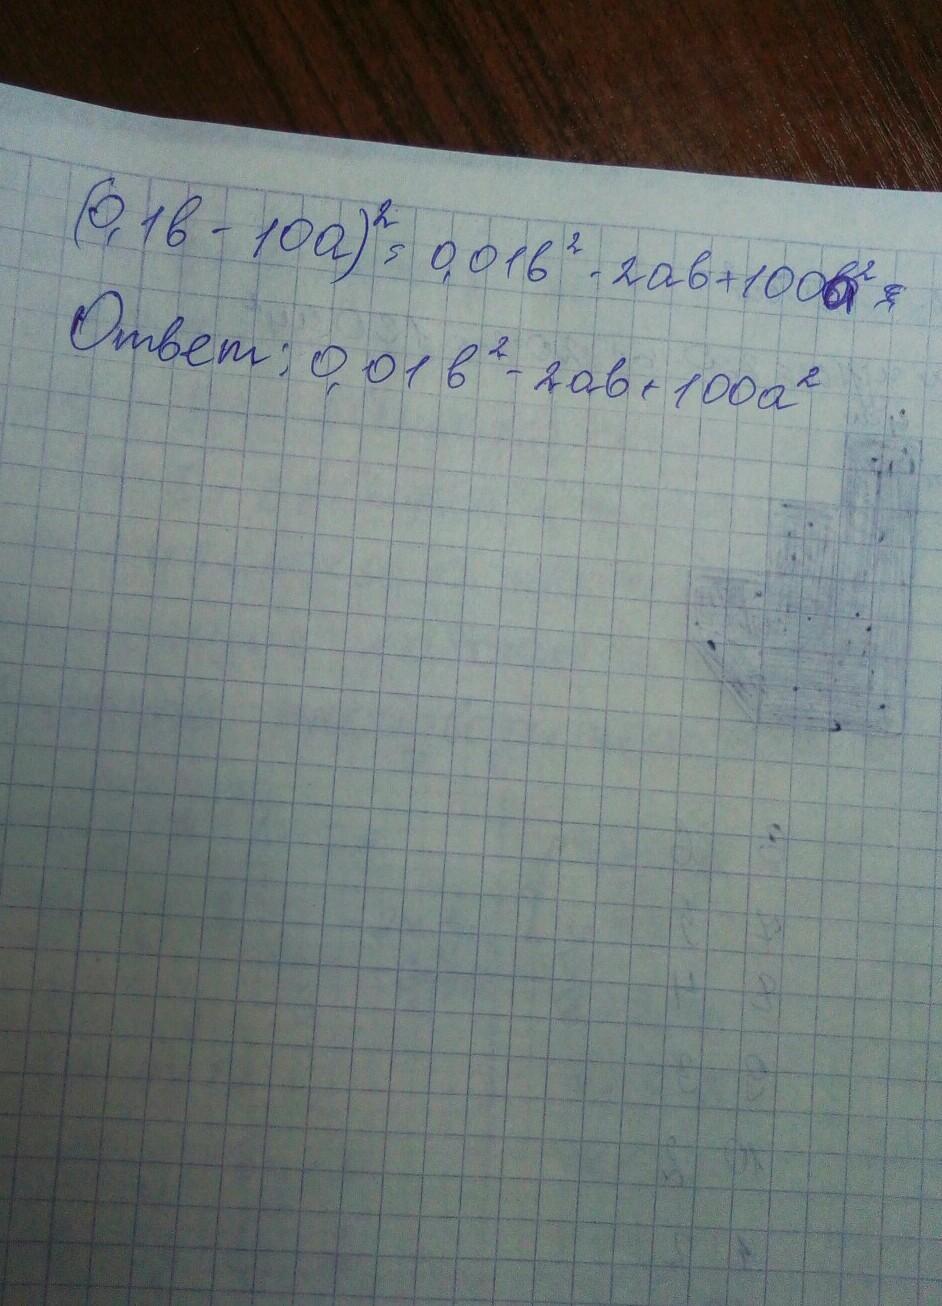 (0,1b - 10a)² = 0,01b² - 2ab + 100a² =
Ответ: 0,01b² - 2ab + 100a²